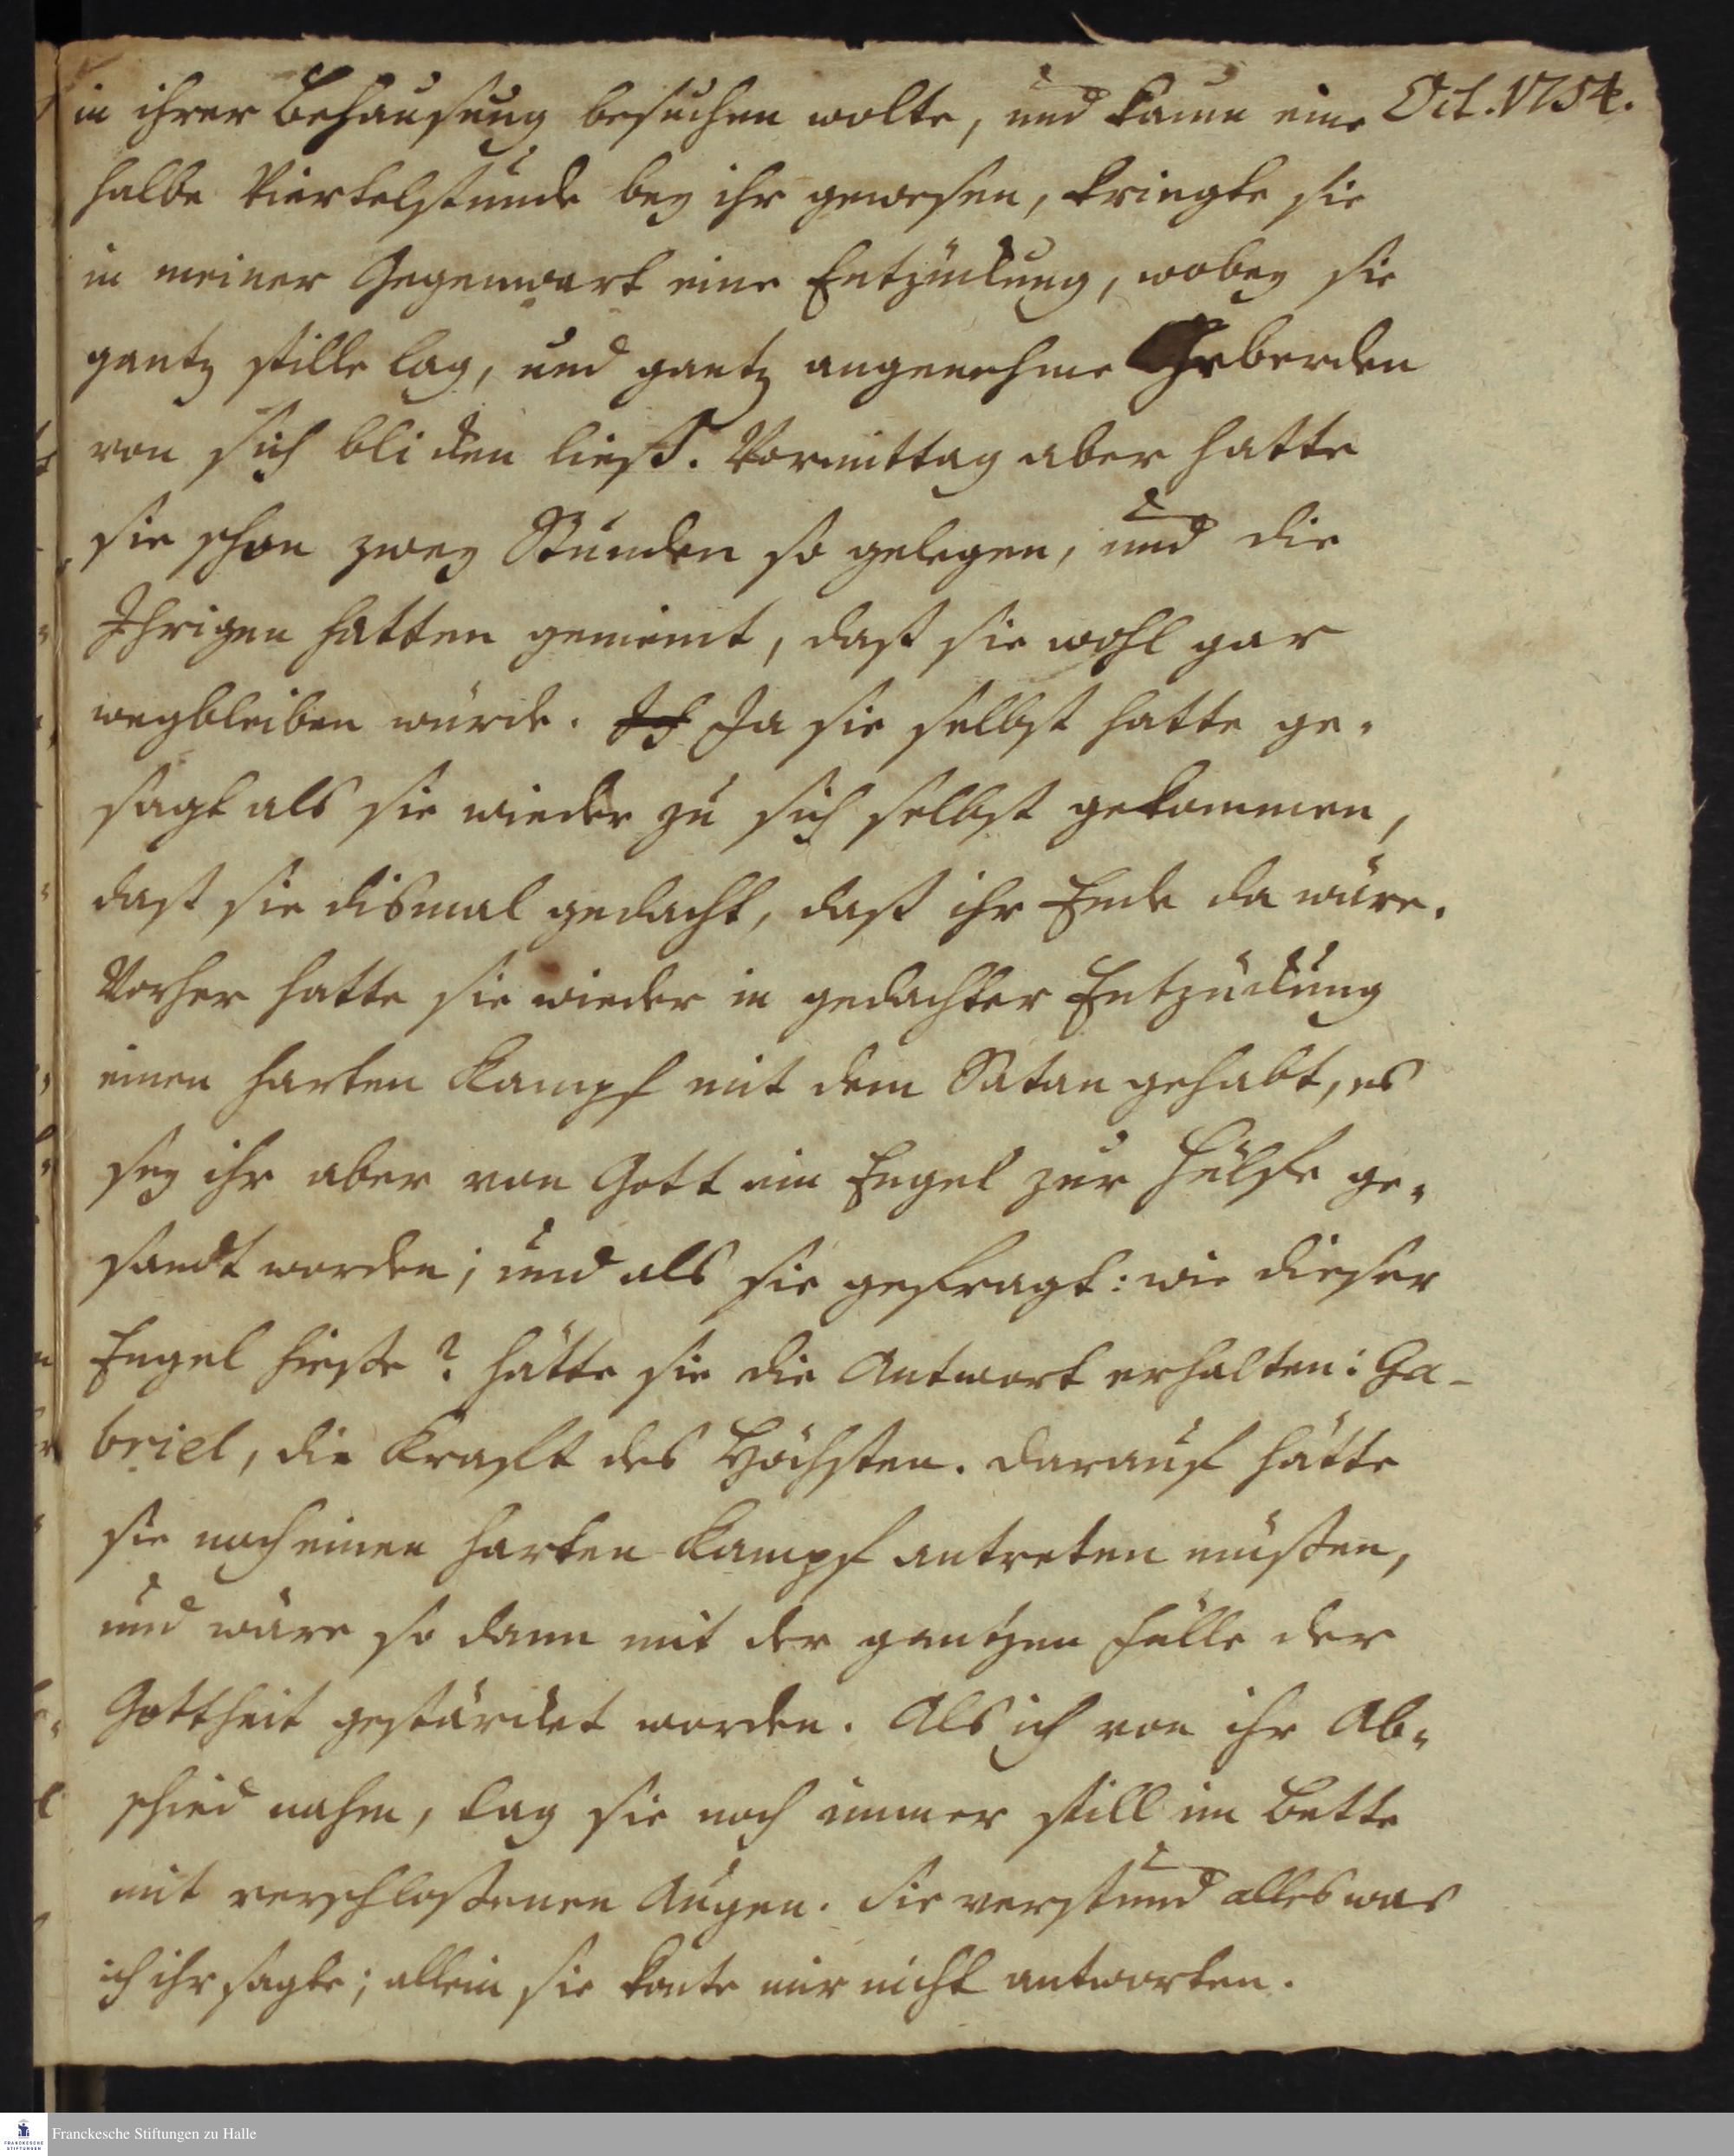 in ihrer Behausung besuchen wolte, und kaum eine Oct. 1754.
halbe Viertelstunde bey ihr gewesen, kriegte sie
in meiner Gegenwart eine Entzückung, wobey sie
gantz stille lag, und gantz angenehme Geberden
von sich blicken ließ. Vormittag aber hatte
sie schon zwey Stunden so gelegen, und die
Ihrigen hatten gemeint, daß sie wohl gar
wegbleiben würde. Ja sie selbst hatte ge-
sagt als sie wieder zu sich selbst gekommen,
daß sie dismal gedacht, daß ihr Ende da wäre.
Vorher hatte sie wieder in gedachter Entzückung
einen harten Kampf mit dem Satan gehabt, es
sey ihr aber von Gott ein Engel zur Hülfe ge-
sandt worden; und als sie gefragt: wie dieser
Engel hieße? hätte sie die Antwort erhalten: Ga-
briel, die Krafft des Höchsten. Darauf hätte
sie noch einen harten Kampf antreten müßen,
und wäre so dann mit der gantzen Fülle der
Gottheit gestärcket worden. Als ich von ihr Ab-
schied nahm, lag sie noch immer still im Bette
mit verschloßenen Augen. Sie verstund alles was
ich ihr sagte; allein sie konte mir nicht antworten.
Franckesche Stiftungen zu Halle